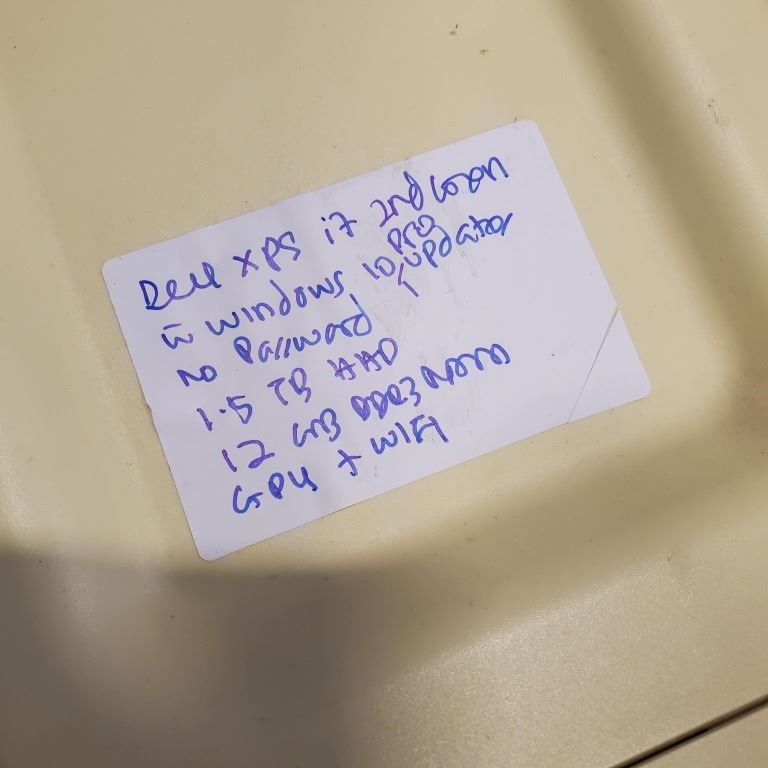 Dell XPS i7 2nd Gen
w̄ windows 10 PRO updates
no Password
1.5 TB HDD
12 GB DDR3 RAM
GPU + WIFI